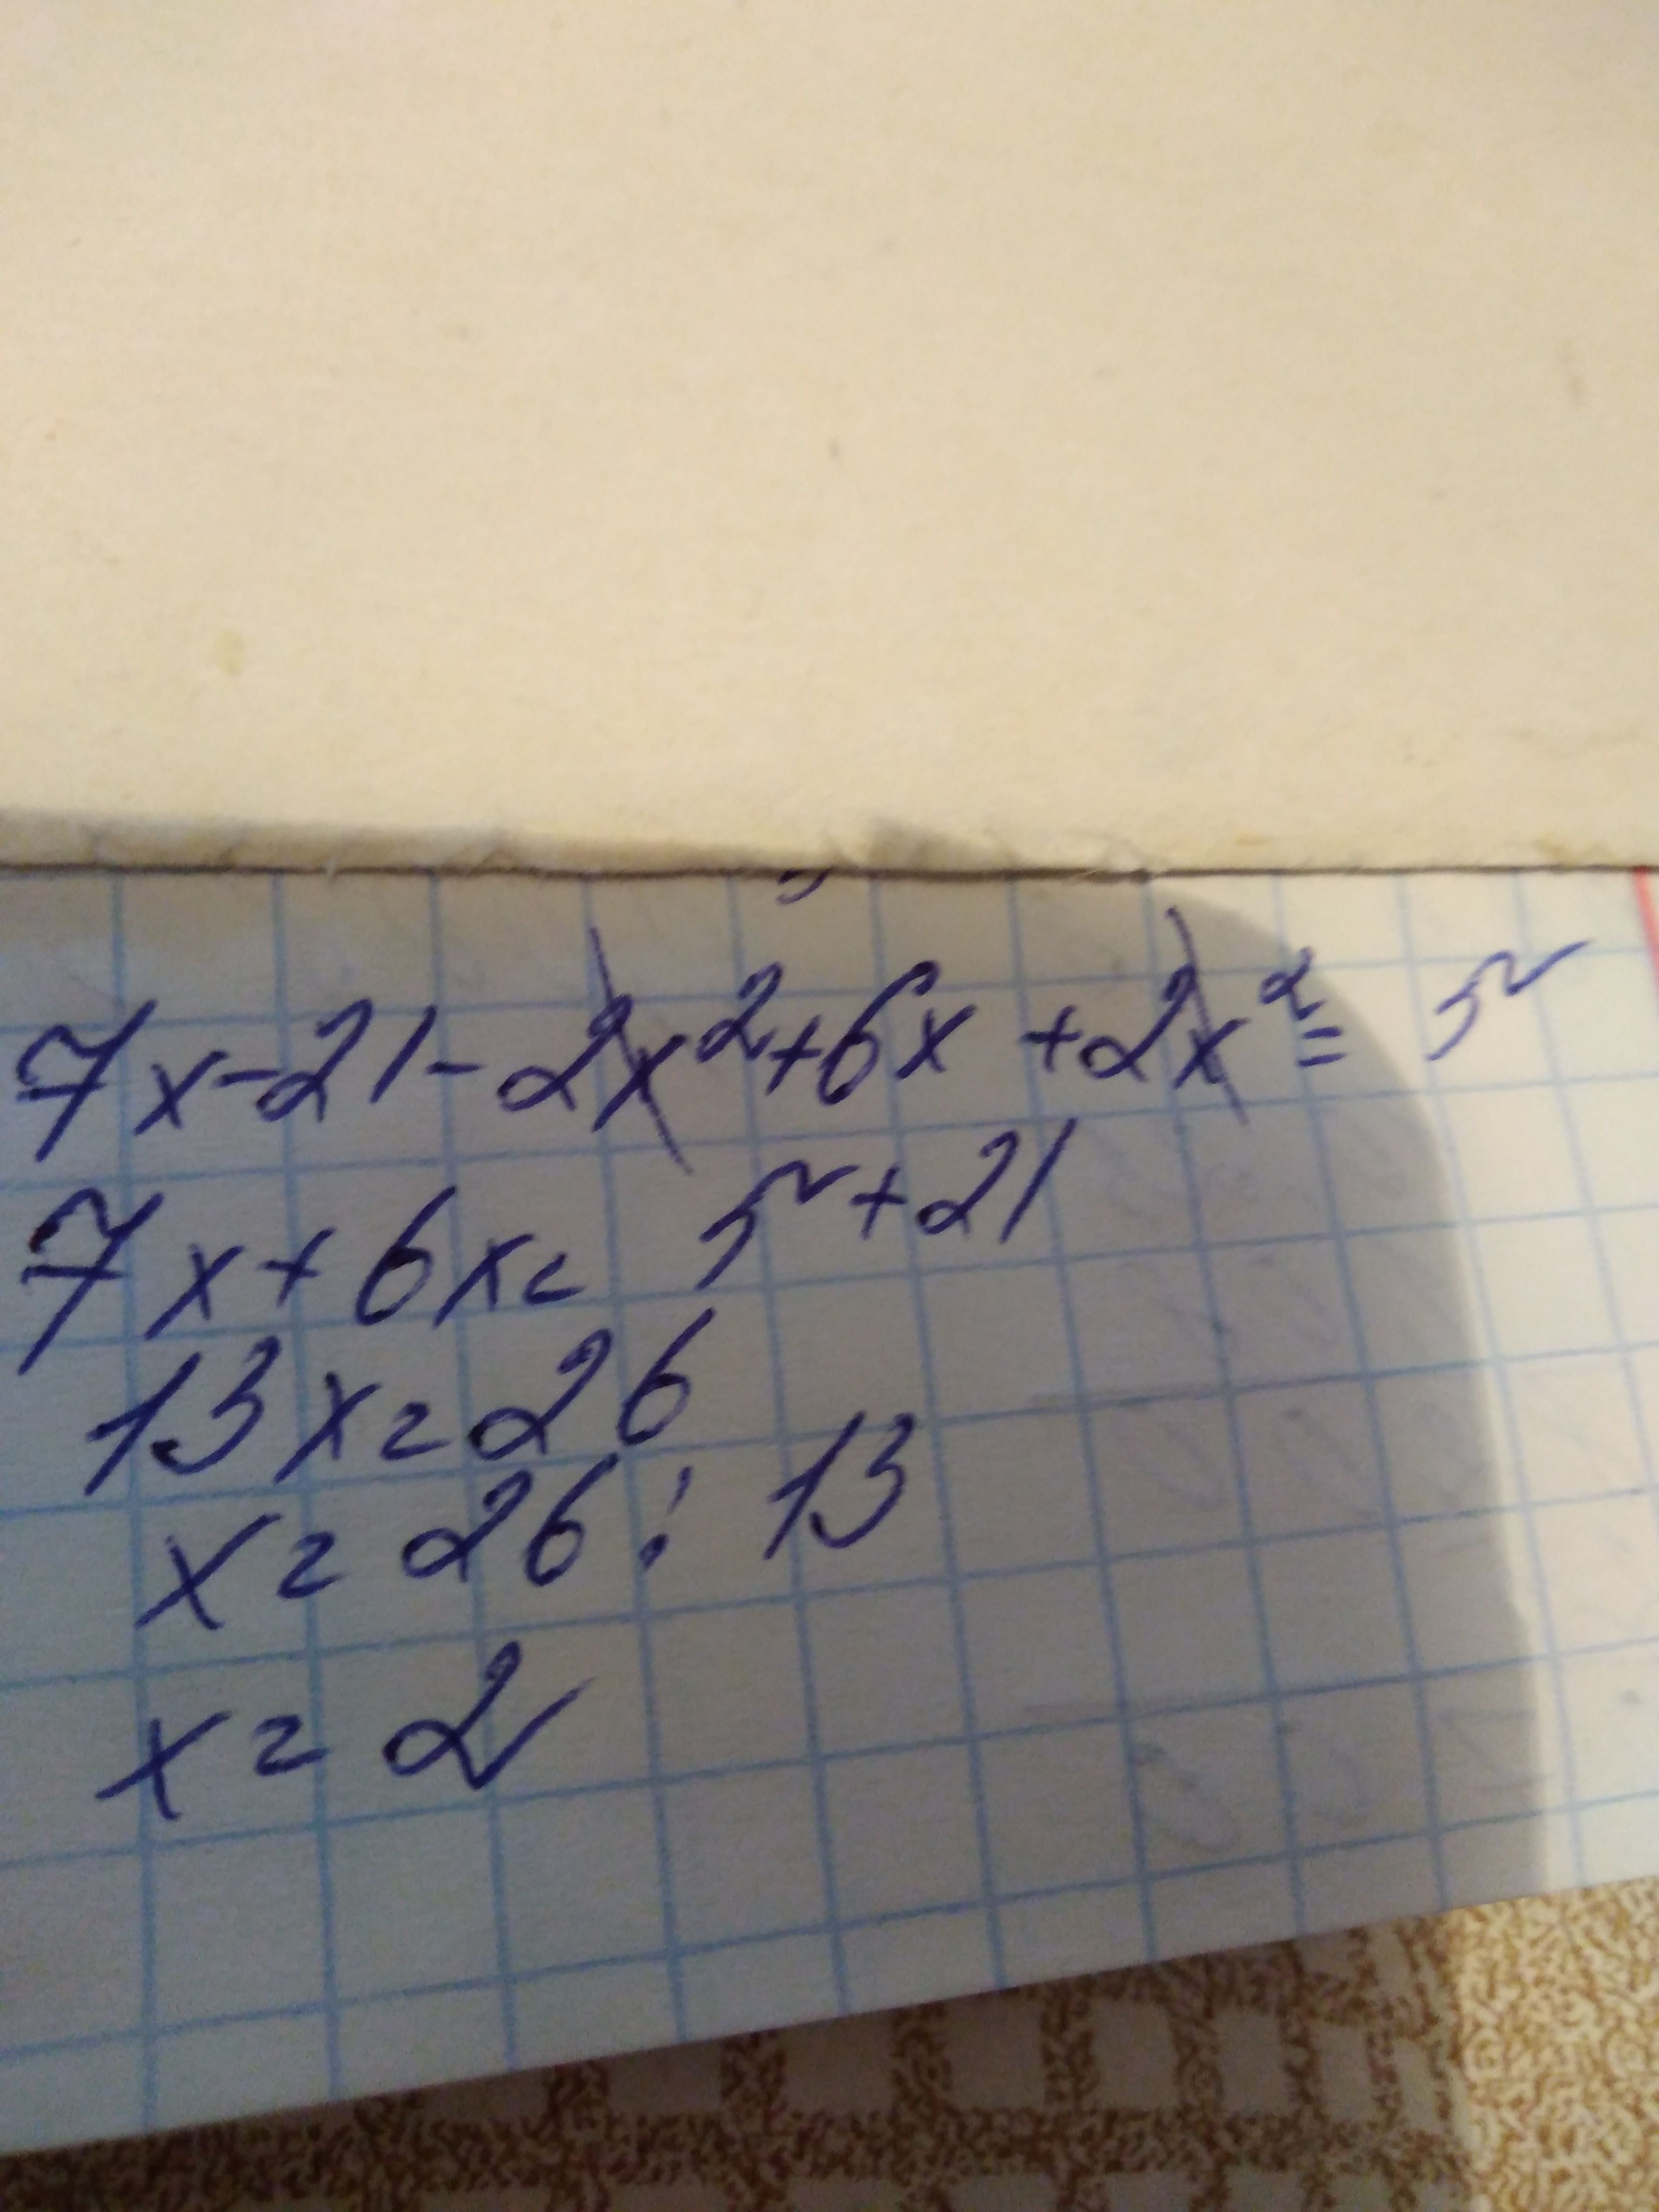 7x-21-2x²+6x+2x²= 5
7x+6x= 5+21
13x=26
x=26:13
x=2